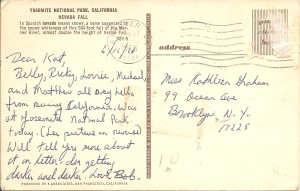 YOSEMITE NATIONAL PARK, CALIFORNIA
NEVADA FALL
In Spanish nevada means snowy, a name suggested by
the snowy whiteness of this 594-foot fall of the Merced River, almost double the height of Vernal Fall.
6/15/68
address
Dear Kat,
Billy, Ricky, Lorrie, Michael,
and Matthew all say hello
from sunny California. Was
at Yosemite National Park
today. (See picture on reverse)
Will tell you more about
it in letter. Its getting
darker and darker. Love Bob.
Miss Kathleen Graham
99 Ocean Ave
Brooklyn N.Y.
11225
SAN FRANCISCO, CALIFORNIA